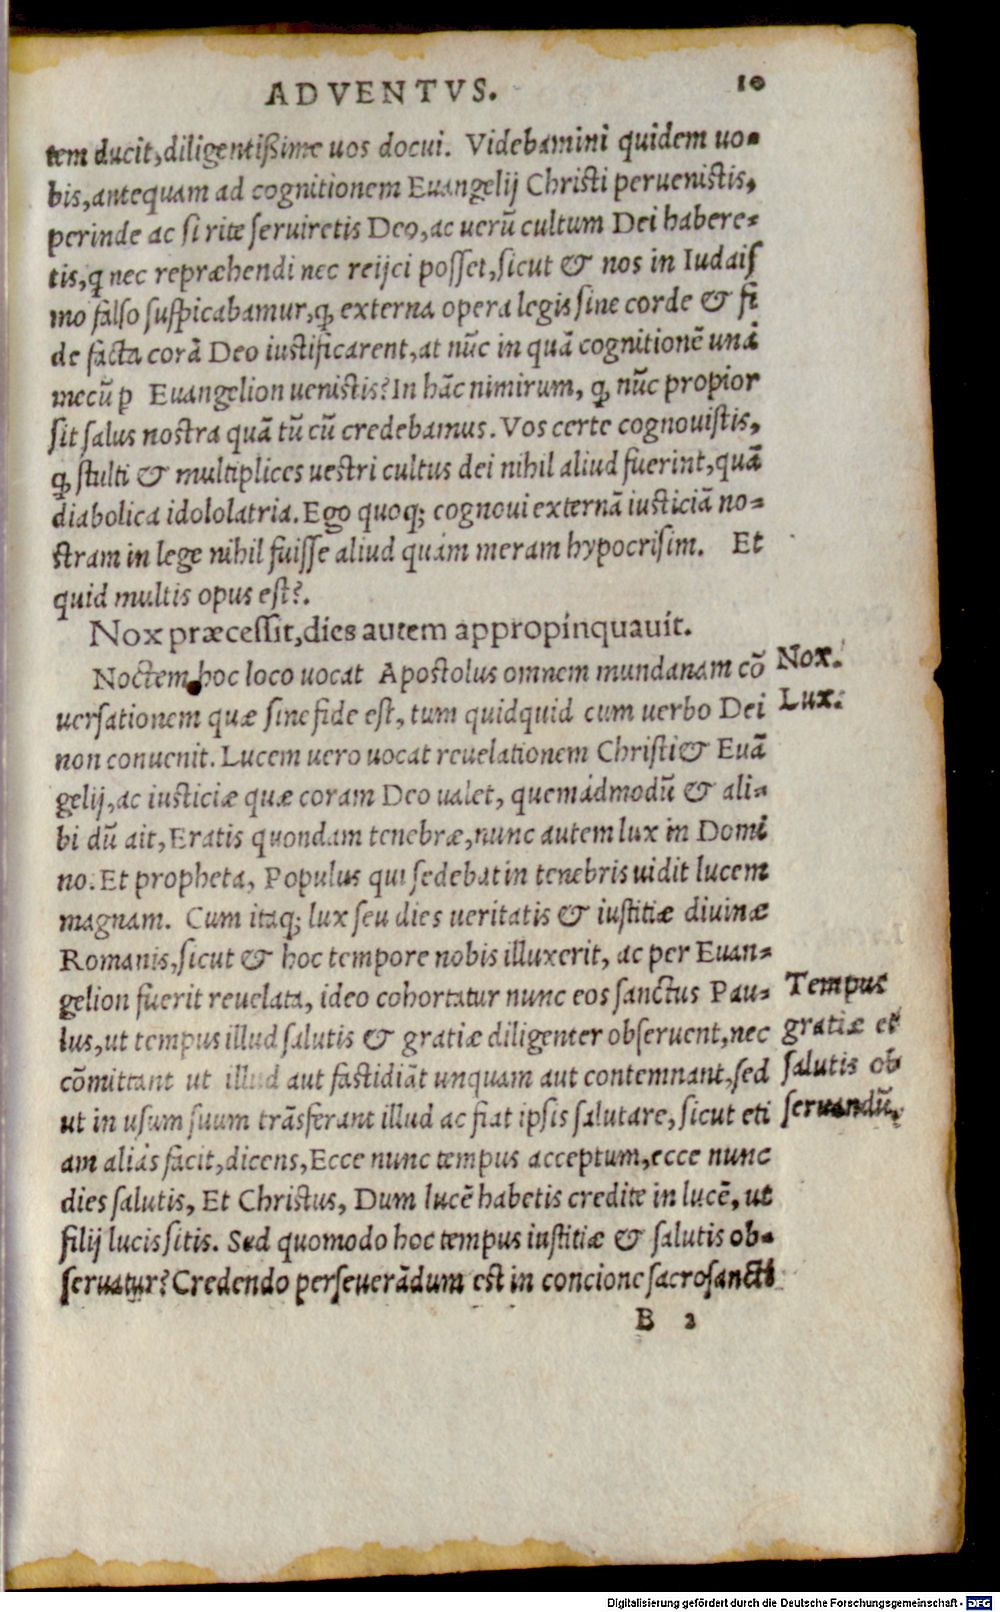 ADVENTVS. 10
tem ducit, diligentißime uos docui. Videbamini quidem uo-
bis, antequam ad cognitionem Euangelij Christi peruenistis,
perinde ac si rite seruiretis Deo, ac uerū cultum Dei habere-
tis, q̃ nec repræhendi nec reijci posset, sicut & nos in Iudais
mo falso suspicabamur, ꝙ externa opera legis sine corde & fi
de facta corā Deo iustificarent, at nūc in quā cognitionē unà
mecū ꝑ Euangelion uenistis? In hāc nimirum, ꝙ nūc propior
sit salus nostra quā tū cū credebamus. Vos certe cognouistis,
ꝙ stulti & multiplices uestri cultus dei nihil aliud fuerint, quā
diabolica idololatria. Ego quoq; cognoui externā iusticiā no-
stram in lege nihil fuisse aliud quàm meram hypocrisim. Et
quid multis opus est?.
Nox præcessit, dies autem appropinquauit.
Noctem hoc loco uocat Apostolus omnem mundanam cō
uersationem quæ sine fide est, tum quidquid cum uerbo Dei
non conuenit. Lucem uero uocat reuelationem Christi & Euā
gelij, ac iusticiæ quæ coram Deo ualet, quemàdmodū & ali-
bi dū ait, Eratis quondam tenebræ, nunc autem lux in Domi
no. Et propheta, Populus qui sedebat in tenebris uidit lucem
magnam. Cum itaq; lux seu dies ueritatis & iustitiæ diuinæ
Romanis, sicut & hoc tempore nobis illuxerit, ac per Euan-
gelion fuerit reuelata, ideo cohortatur nunc eos sanctus Pau-
lus, ut tempus illud salutis & gratiæ diligenter obseruent, nec
cōmittant ut illud aut fastidiāt unquam aut contemnant, sed
ut in usum suum trāsferant illud ac fiat ipsis salutare, sicut eti
am aliàs facit, dicens, Ecce nunc tempus acceptum, ecce nunc
dies salutis, Et Christus, Dum lucē habetis credite in lucē, ut
filij lucis sitis. Sed quomodo hoc tempus iustitiæ & salutis ob-
seruatur? Credendo perseuerādum est in concione sacrosancti
B 2
Nox.
Lux.
Tempus
gratiæ et
salutis ob
seruandū.
Digitalisierung gefördert durch die Deutsche Forschungsgemeinschaft - DFG